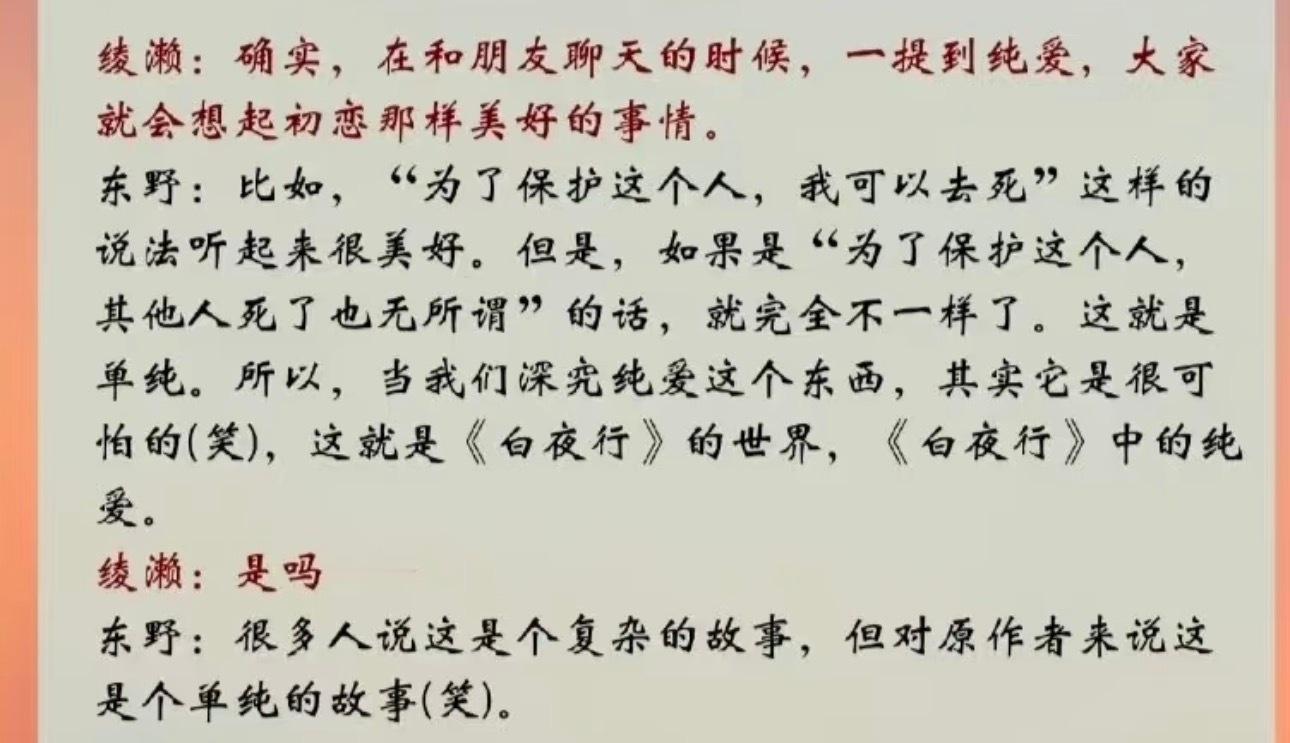 绫濑：确实，在和朋友聊天的时候，一提到纯爱，大家
就会想起初恋那样美好的事情。
东野：比如，“为了保护这个人，我可以去死”这样的
说法听起来很美好。但是，如果是“为了保护这个人，
其他人死了也无所谓”的话，就完全不一样了。这就是
单纯。所以，当我们深究纯爱这个东西，其实它是很可
怕的(笑)，这就是《白夜行》的世界，《白夜行》中的纯
爱。
绫濑：是吗
东野：很多人说这是个复杂的故事，但对原作者来说这
是个单纯的故事(笑)。